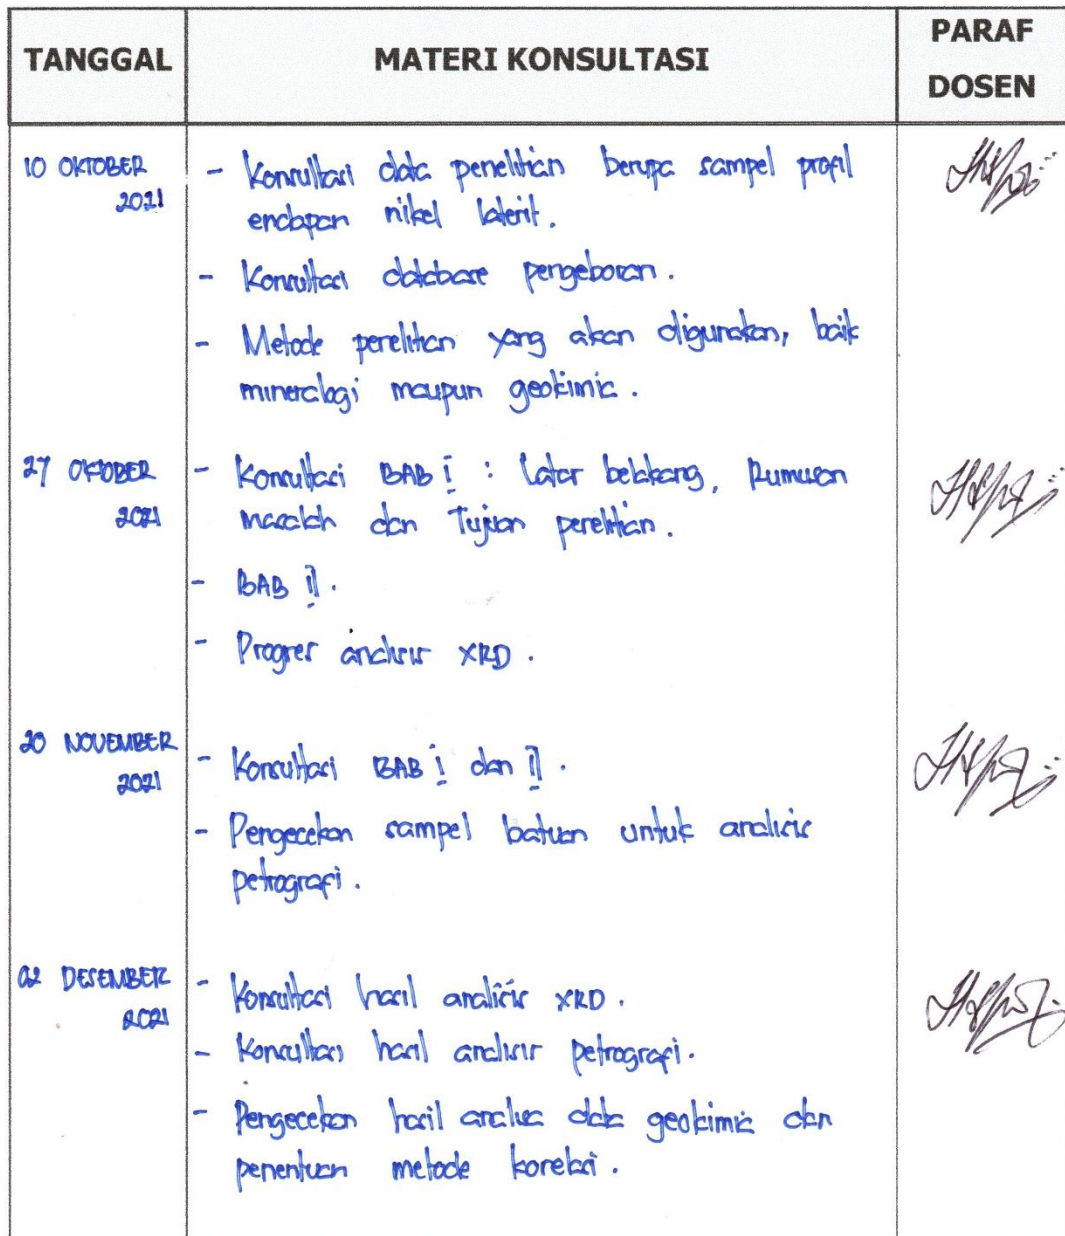 TANGGAL MATERI KONSULTASI PARAF DOSEN
10 OKTOBER 2021
- Konsultasi data penelitian berupa sampel profil
endapan nikel laterit.
- Konsultasi database pengeboran.
- Metode penelitian yang akan digunakan, baik
mineralogi maupun geokimia.
27 OKTOBER 2021
- Konsultasi BAB I : Latar belakang, Rumusan
masalah dan Tujuan penelitian.
- BAB II.
- Progres analisis XRD.
20 NOVEMBER 2021
- Konsultasi BAB I dan II.
- Pengecekan sampel batuan untuk analisis
petrografi.
02 DESEMBER 2021
- Konsultasi hasil analisis XRD.
- Konsultasi hasil analisis petrografi.
- Pengecekan hasil analisa data geokimia dan
penentuan metode korelasi.